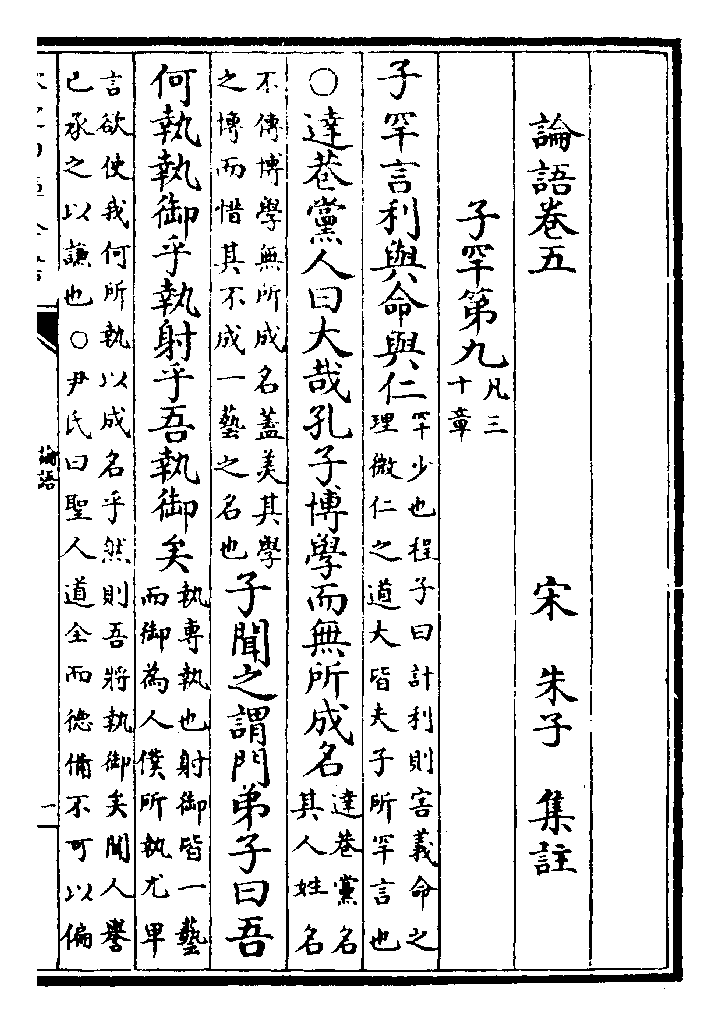 論語卷五　宋　朱子　集註
子罕第九
凡三
十章
子罕言利與命與仁
罕少也程子曰計利則害義命之
理微仁之道大皆夫子所罕言也
○達巷黨人曰大哉孔子博學而無所成名
達巷黨名
其人姓名
不傳博學無所成名蓋美其學
之博而惜其不成一藝之名也
子聞之謂門弟子曰吾
何執執御乎執射乎吾執御矣
執專執也射御皆一藝
而御為人僕所執尤卑
言欲使我何所執以成名乎然則吾將執御矣聞人譽
己承之以謙也○尹氏曰聖人道全而德備不可以偏
論語
一